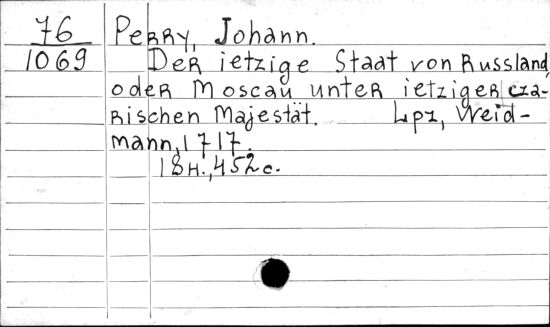 76
1069
Perry, Johann.
Der ietzige Staat von Russland,
oder Moscau unter ietziger cza-
rischen Majestät. Lpz, Weid-
mann, 1717.
18 н., 452 с.